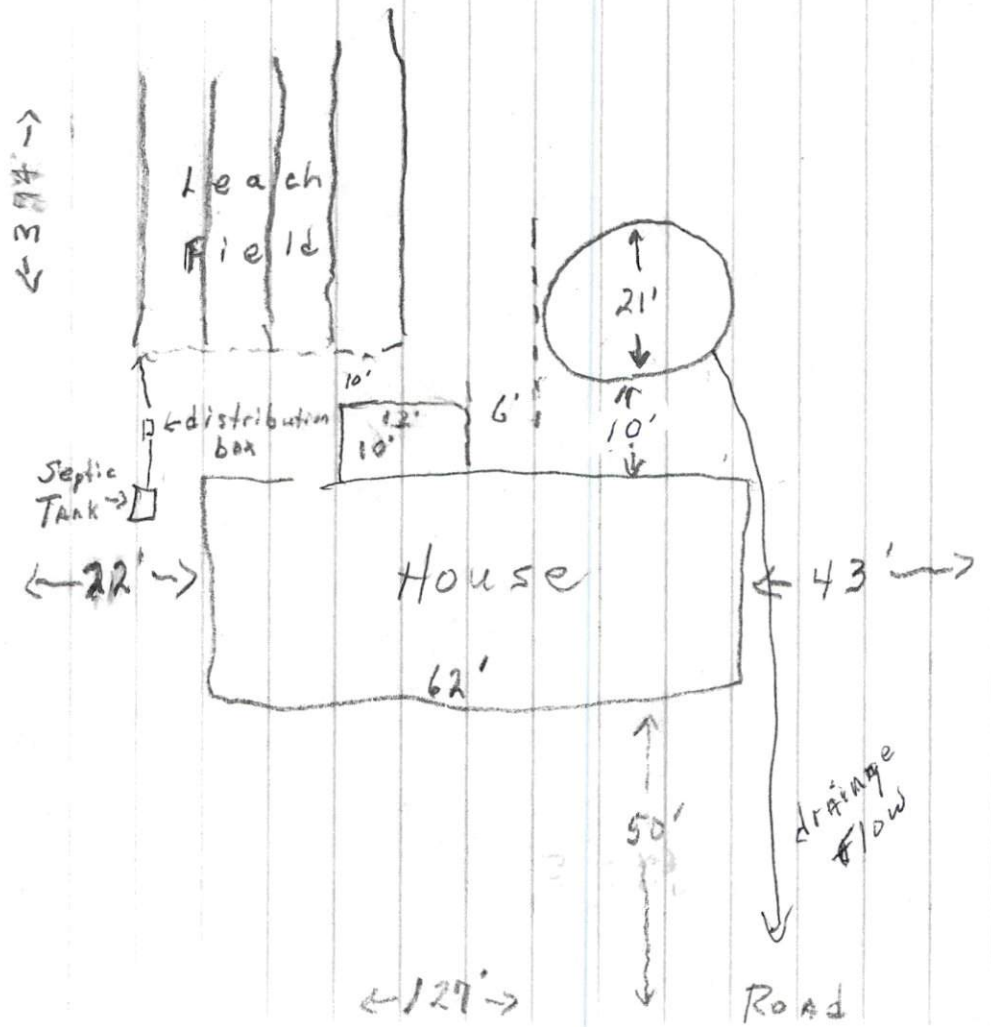 Leach
Field
21'
10'
←distribution
box
12'
10'
6'
10'
Septic
TANK→
←22'→
House
←43'→
62'
50'
drainage
flow
←127'→
Road